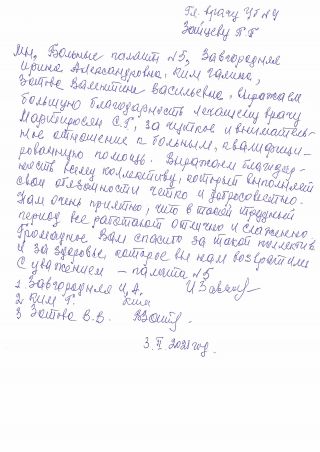 Гл. врачу УБ №4
Зайцеву Р.Г.
Мы, больные палаты №5, Завгородняя
Ирина Александровна, Ким Галина,
Зотова Валентина Васильевна, выражаем
большую благодарность лечащему врачу
Мартиросян С.Г., за чуткое и вниматель-
ное отношение к больным, квалифици-
рованную помощь. Выражаем благодар-
ность всему коллективу, который выполняет
свои обязанности четко и добросовестно.
Нам очень приятно, что в такой трудный
период все работают отлично и слаженно.
Громадное Вам спасибо за такой коллектив
и за здоровье, которое вы нам возвратили
С уважением – палата №5
1 Завгородняя И.А.
2 Ким Г. Ким
3 Зотова В.В.
3. II 2021 год.